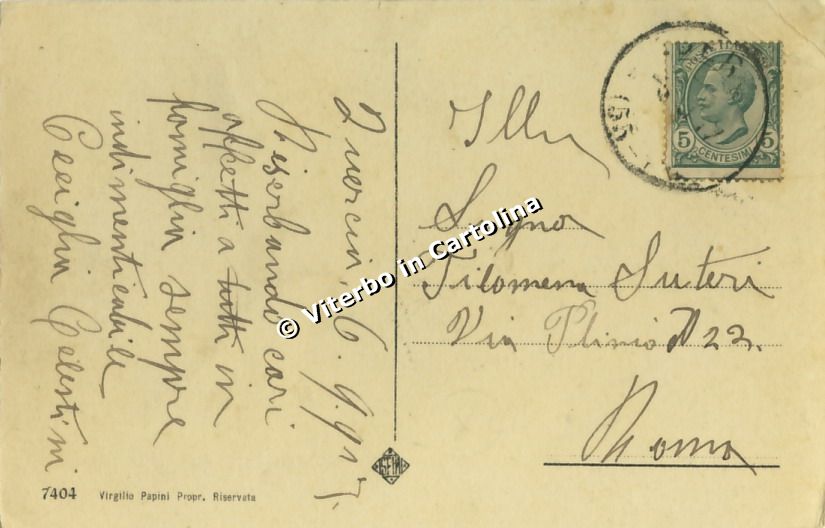 Quercia, 6. 9. 917.
Riserbando cari
affetti a tutti in
famiglia sempre
indimenticabile
Ceciglia Celestini
Illu
Signa
Filomena Suteri
Via Plinio N 22.
Roma
POSTE ITALIANE
5 5
CENTESIMI
© Viterbo in Cartolina
7404 Virgilio Papini Propr. Riservata